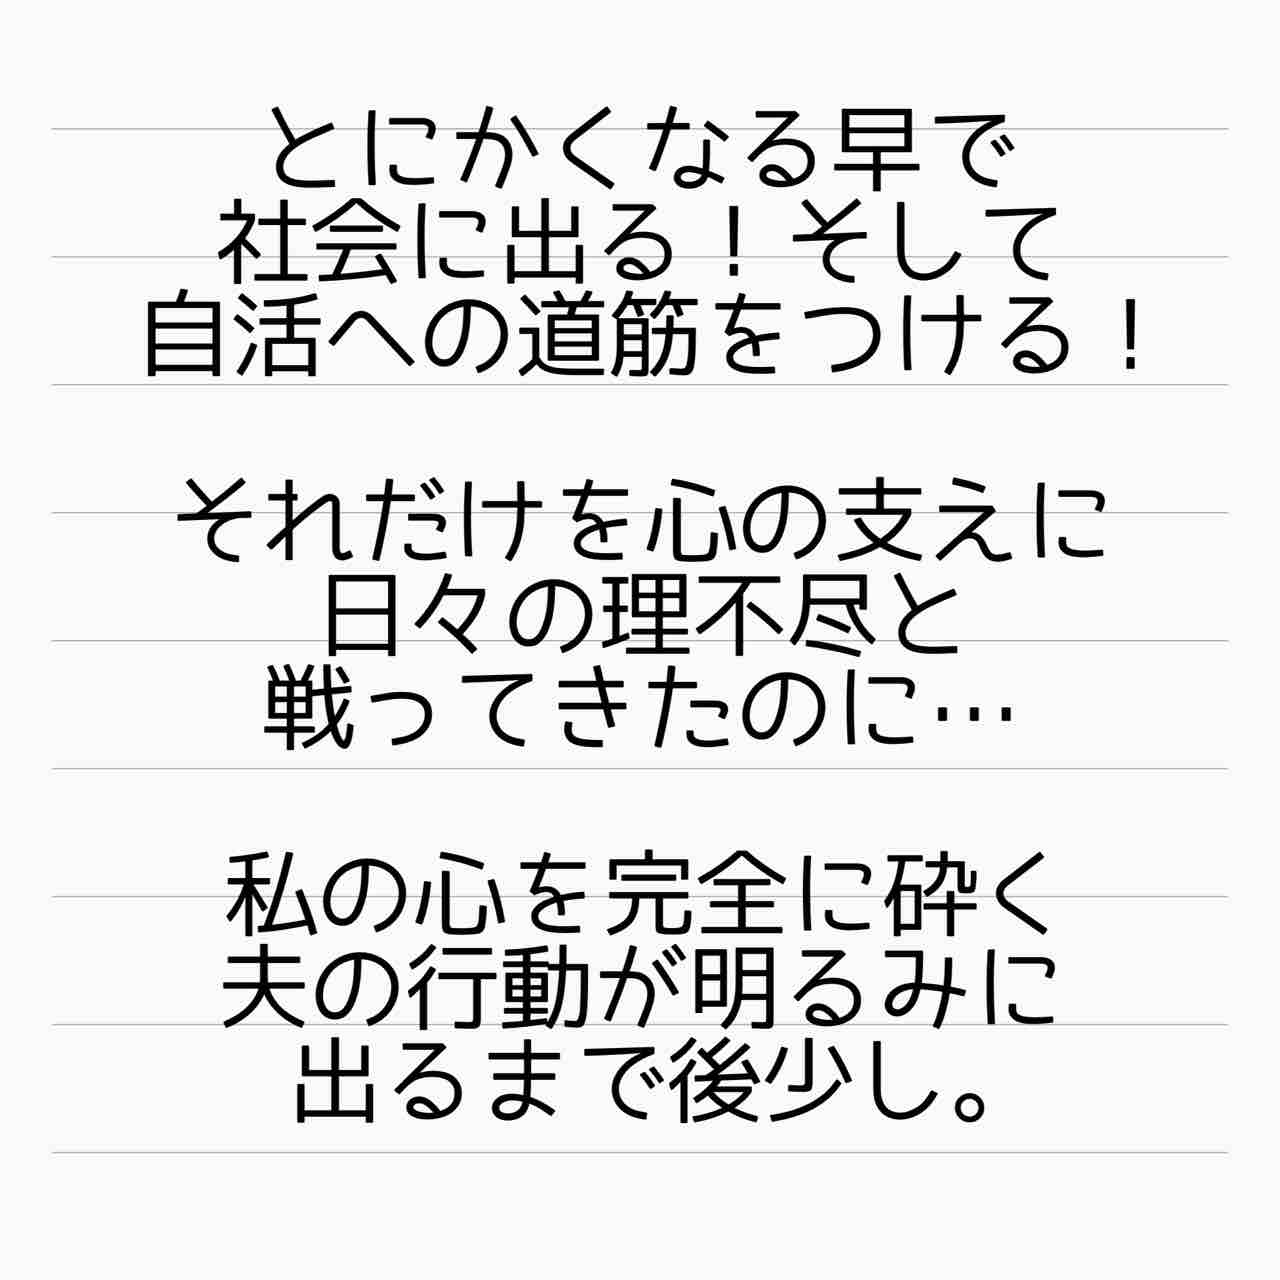 とにかくなる早で
社会に出る！そして
自活への道筋をつける！
それだけを心の支えに
日々の理不尽と
戦ってきたのに…
私の心を完全に砕く
夫の行動が明るみに
出るまで後少し。